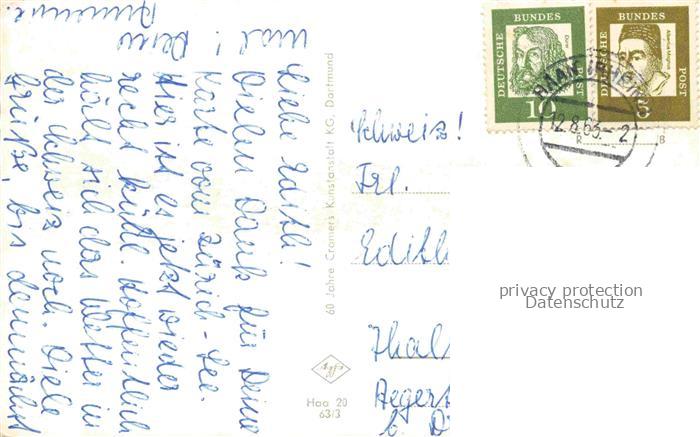 Liebe Edith!
Vielen Dank für Deine
Karte vom Zürich-See.
Hier ist es jetzt wieder
recht kühl. Hoffentlich
hält sich das Wetter in
der Schweiz noch. Viele
Grüße, bis demnächst
mal! Deine
Annemarie.
60 Jahre Cramers Kunstanstalt KG, Dortmund
Schweiz!
Frl.
Edith
Thal
Aeger
b.
Haa 20
63/3
DEUTSCHE
BUNDES
POST
10
DEUTSCHE
BUNDES
POST
Albertus Magnus
5
HAAN (RHEINL)
12.8.63.-2
B
privacy protection
Datenschutz